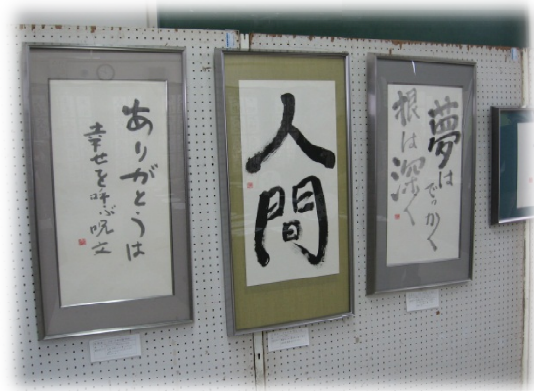 ありがとうは
幸せを呼ぶ呪文
人間
夢は
でっかく
根は深く